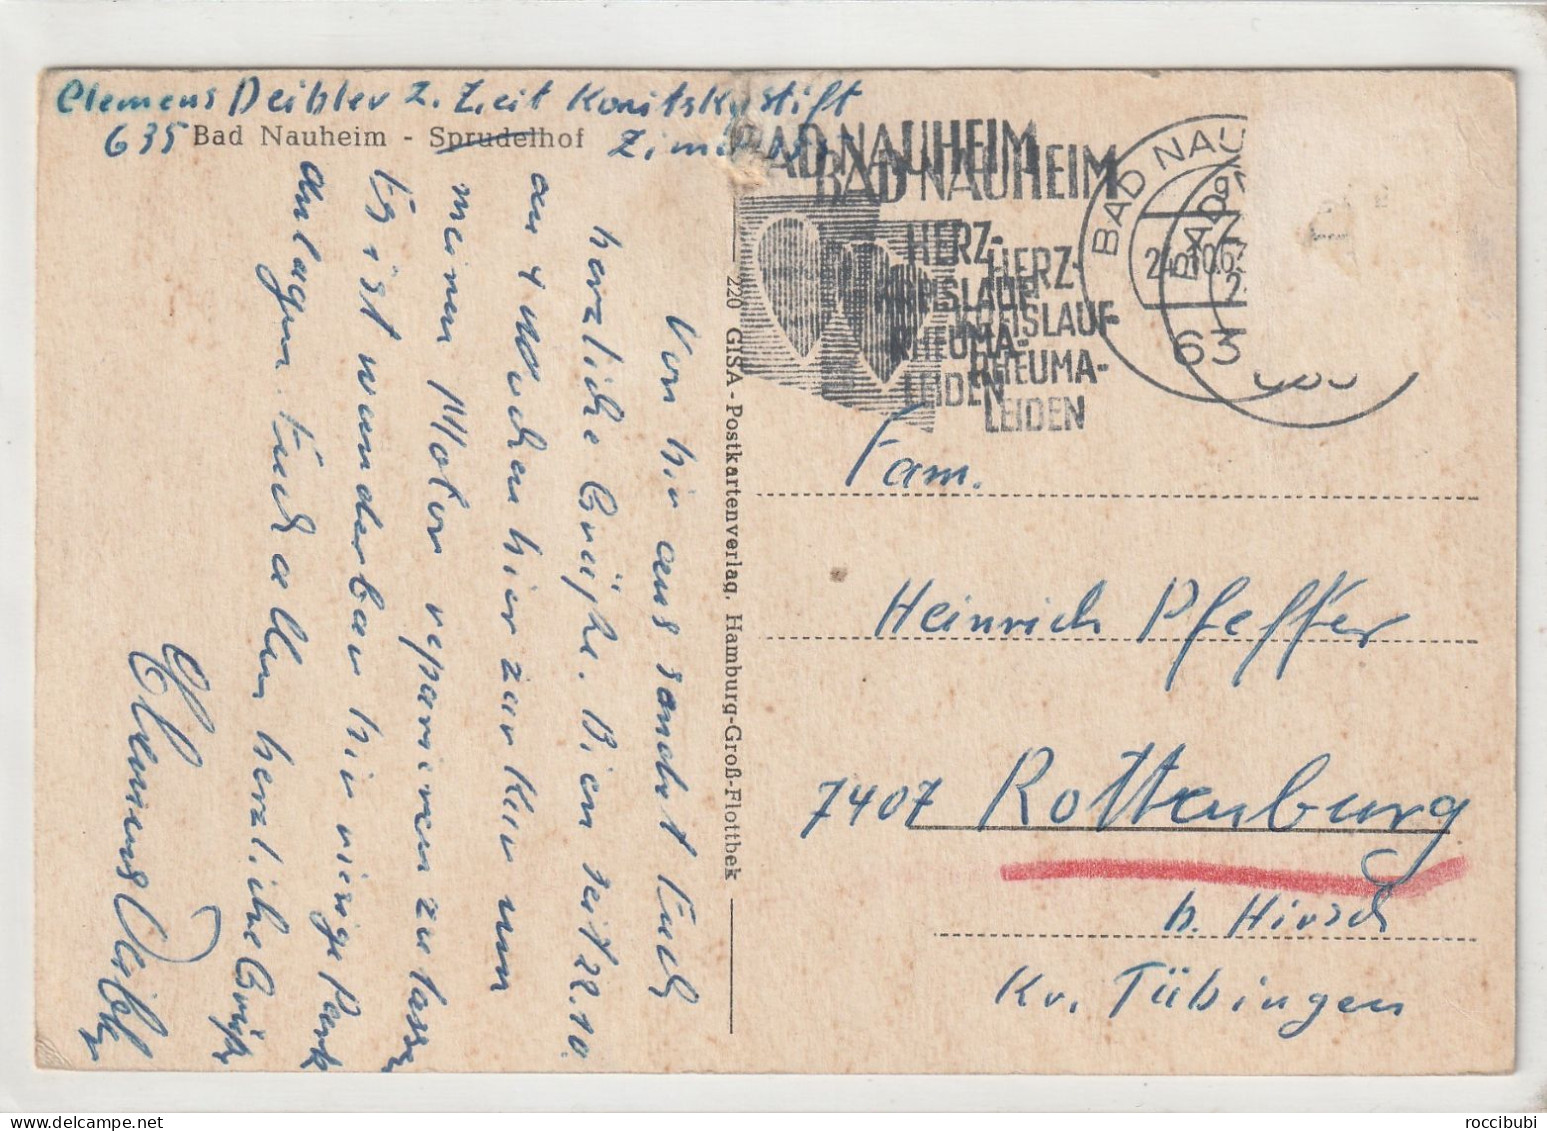 Clemens Deibler z. Zeit Konitzkystift
635 Bad Nauheim - Sprudelhof
Von hir aus sendet Euch
herzliche Grüße. Bien seit 22.10.
auf 4 Wochen hier zur Kur um
meinen Motor reparieren zu lassen
Es ist wunderbar hir riesige Park
anlagen. Euch allen herzliche Grüße
Clemens Deibler
220 GISA - Postkartenverlag, Hamburg-Groß-Flottbek
BAD NAUHEIM
BAD NAUHEIM
HERZ-
HERZ-
KREISLAUF-
KREISLAUF-
RHEUMA-
RHEUMA-
LEIDEN
LEIDEN
BAD NAU
63
Fam.
Heinrich Pfeffer
7407 Rottenburg
b. Hirsch
Kr. Tübingen
roccibubi